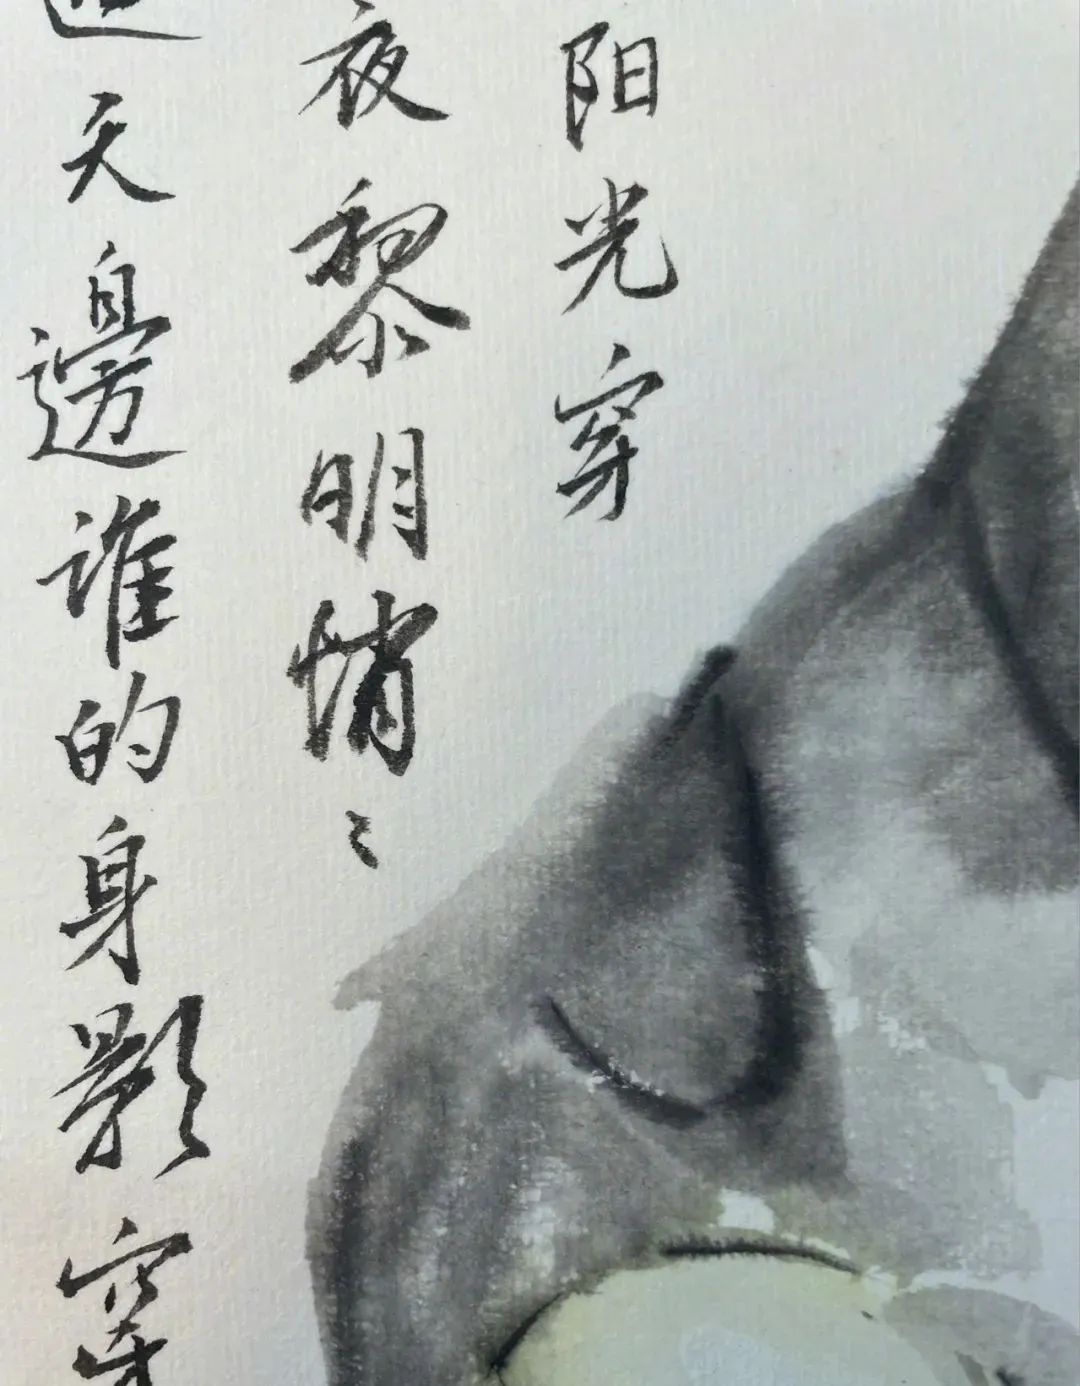 阳光穿
夜黎明悄〻
天邊谁的身影穿